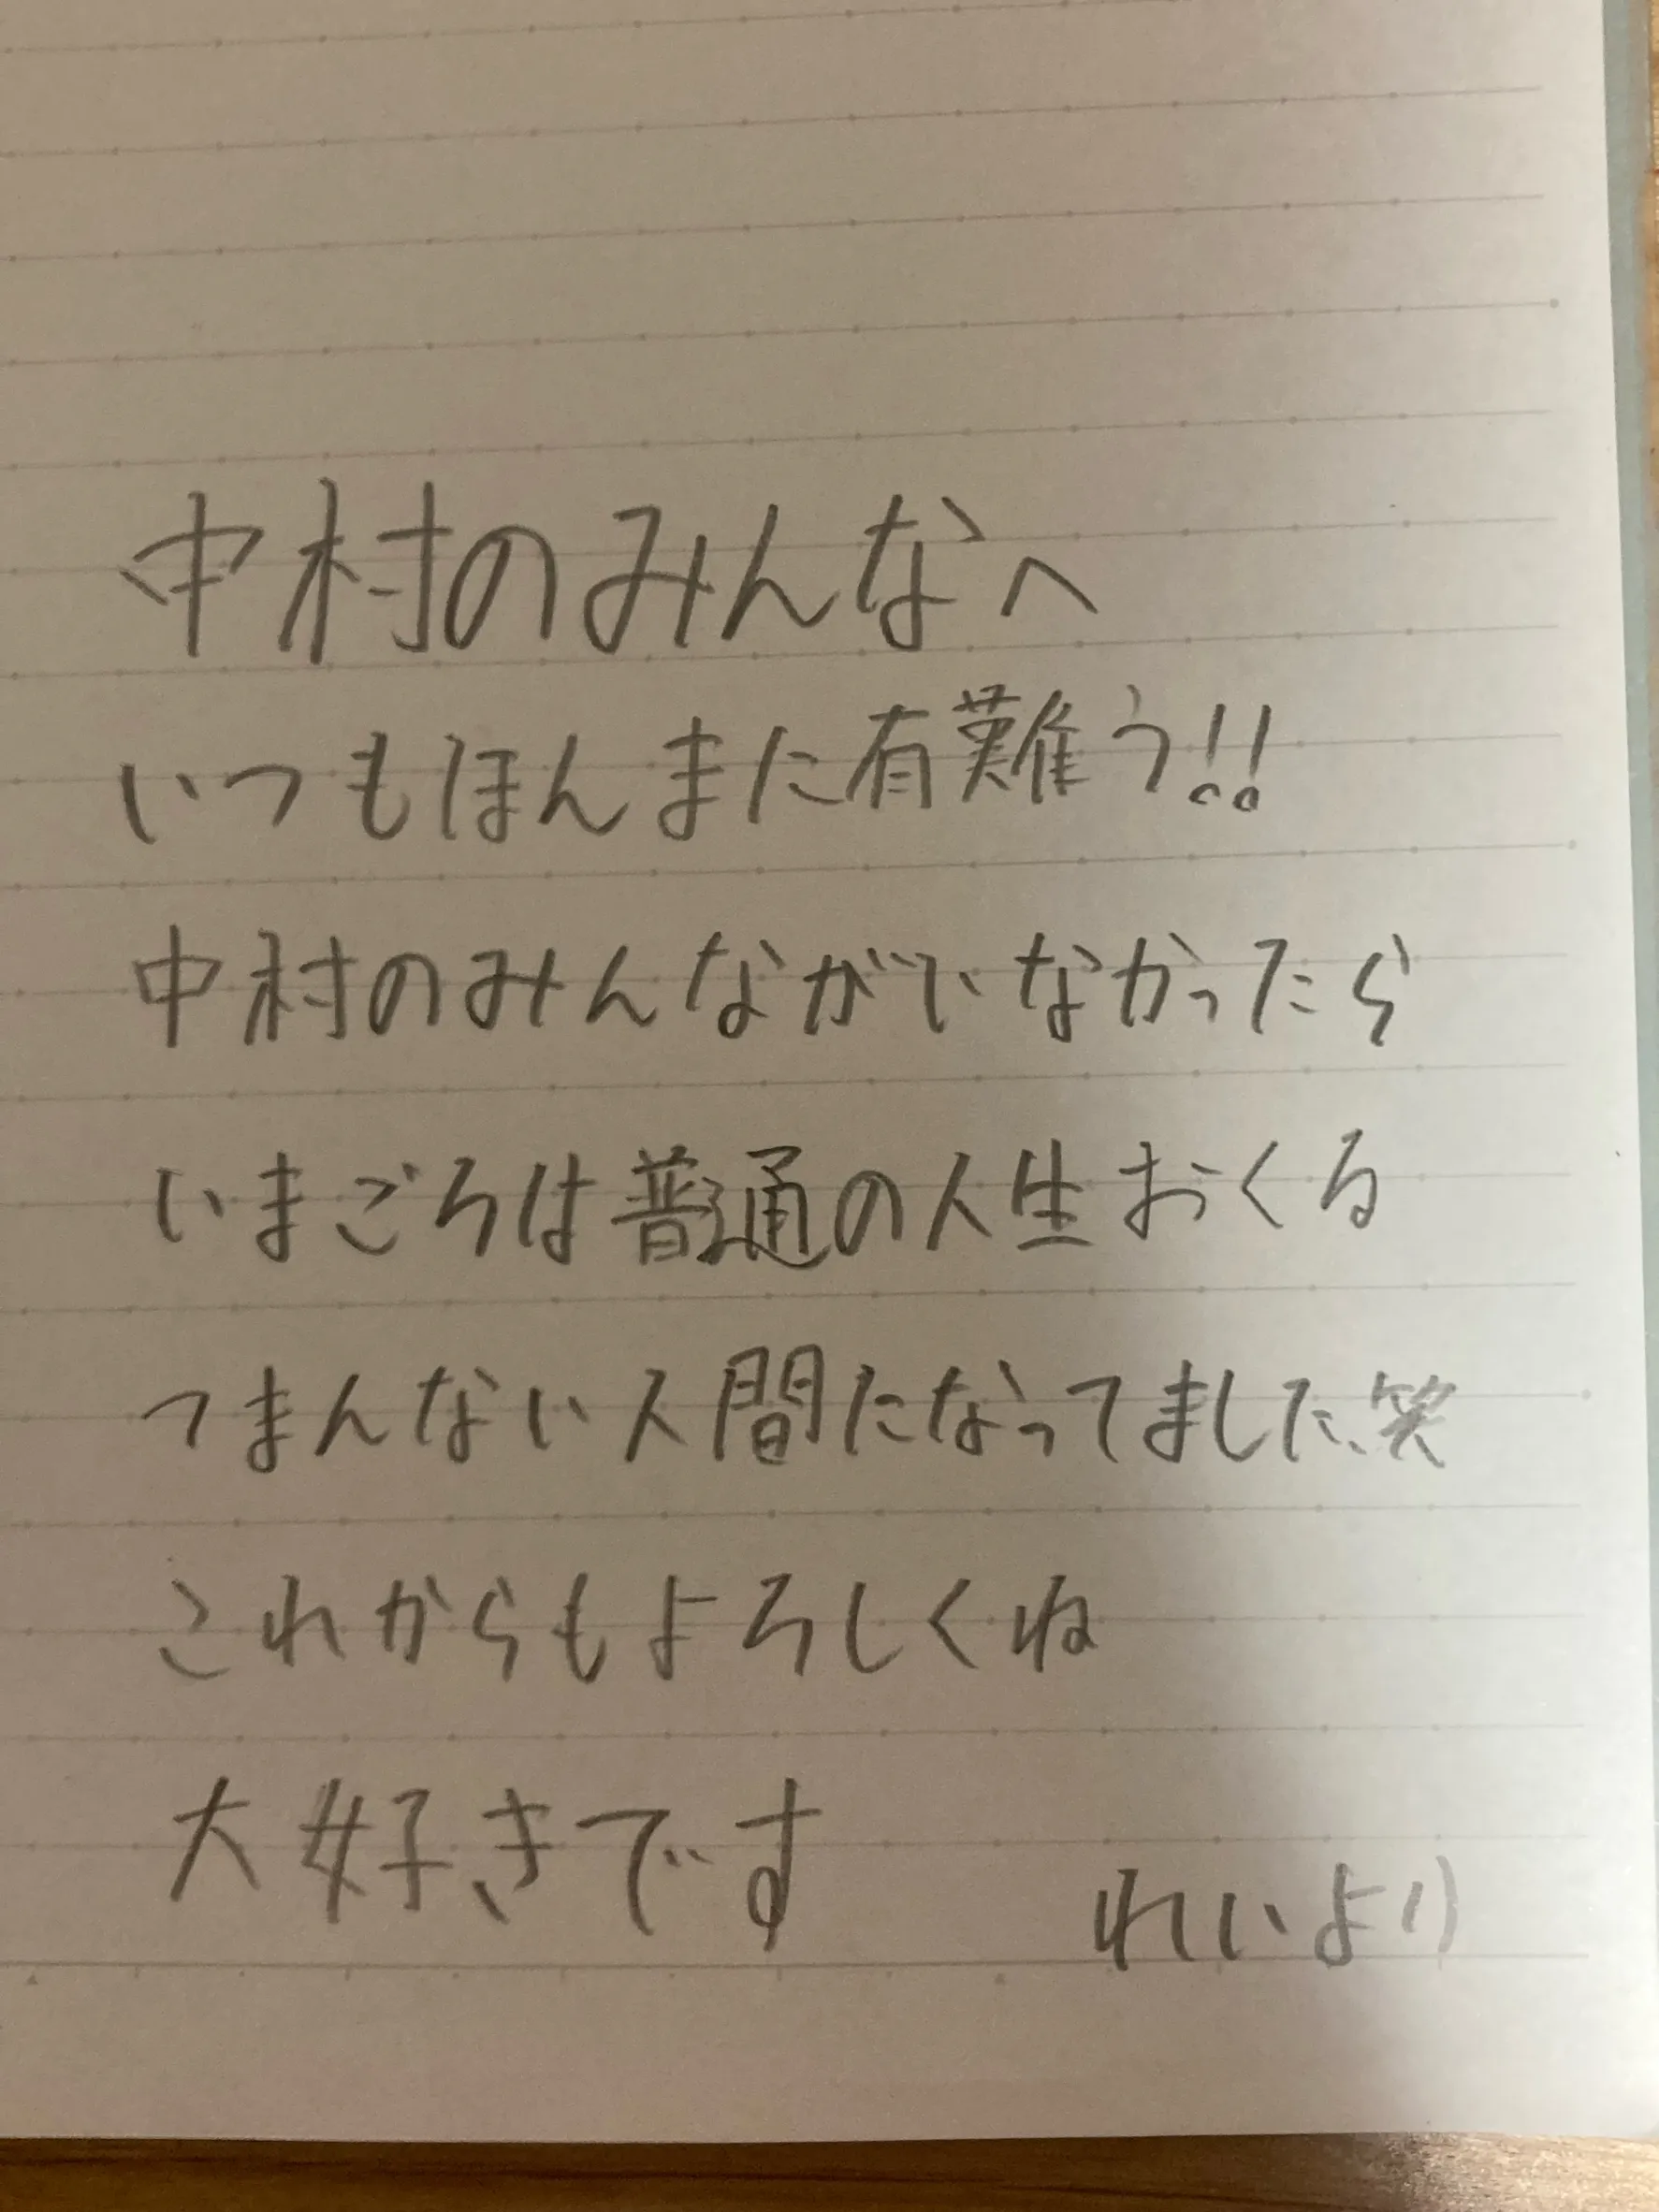 中村のみんなへ
いつもほんまに有難う!!
中村のみんながいなかったら
いまごろは普通の人生おくる
つまんない人間になってました、笑
これからもよろしくね
大好きです
れいより